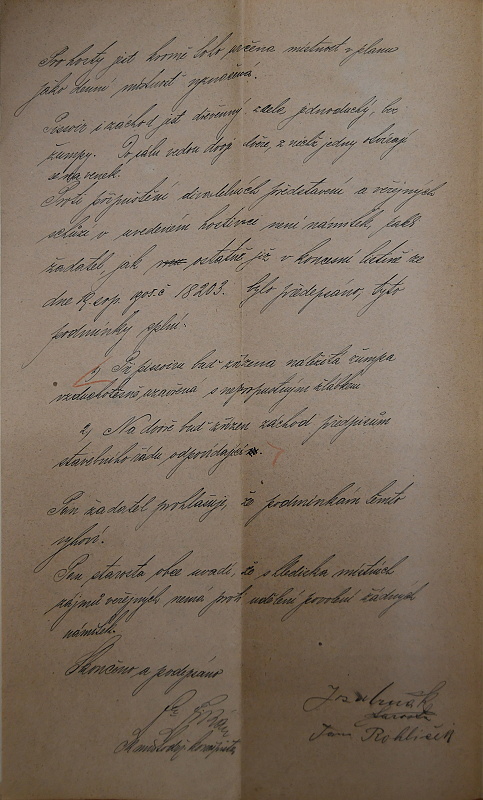 Pro hosty jest kromě toho určena místnost v plánu
jako denní místnost vyznačená.
Pissoir i záchod jest dřevěný zcela jednoduchý, bez
žumpy. Do sálu vedou dvoje dvéře, z nichž jedny otvírají
se na venek.
Proti připuštění divadelních představení a veřejných
schůzí v uvedeném hostinci není námitek, jakž
žadatel, jak ostatně již v koncesní listině ze
dne č 18203. bylo předepsáno, tyto
podmínky splní.
1) Při pissoiru buď zřízena náležitá žumpa
vzduchotěsně uzavřena s nepropustným žlábkem
2) Na dvoře buď zřízen záchod předpisům
stavebního řádu odpovídající.
Pan žadatel prohlašuje, že podmínkám těmto
vyhoví.
Pan starosta obce uvádí, že s hlediska místních
zájmů veřejných nemá proti udělení povolení žádných
námitek.
Skončeno a podepsáno
starosta
Jan Rohlíček